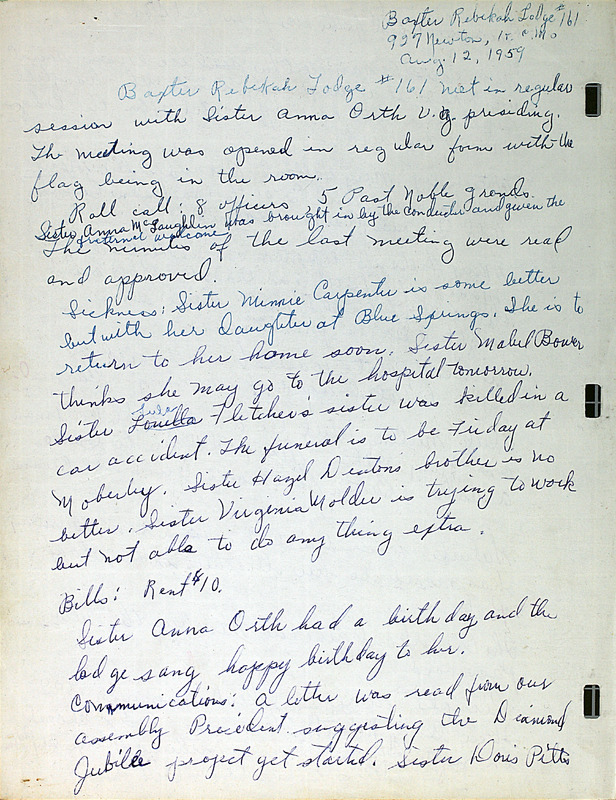 Baxter Rebekah Lodge #161
927 Newton, K.C. Mo
Aug. 12, 1959
Baxter Rebekah Lodge #161 met in regular
session with Sister Anna Orth V.G. presiding.
The meeting was opened in regular form with the
flag being in the room.
Roll call: 8 officers 5 Past Noble grands.
Sister Anna McLaughlin was brought in by the conductor and given the
fraternal welcome.
The minutes of the last meeting were read
and approved.
Sickness: Sister Minnie Carpenter is some better
but with her daughter at Blue Springs. She is to
return to her home soon. Sister Mabel Bower
thinks she may go to the hospital tomorrow.
Sister Fletcher's sister was killed in a
car accident. The funeral is to be Friday at
Moberley. Sister Hazel Deaton's brother is no
better. Sister Virginia Molder is trying to work
but not able to do any thing extra.
Bills: Rent $10.
Sister Anna Orth had a birthday and the
lodge sang happy birthday to her.
Communications: a letter was read from our
assembly President suggesting the Diamond
Jubilee project get started. Sister Doris Pitts